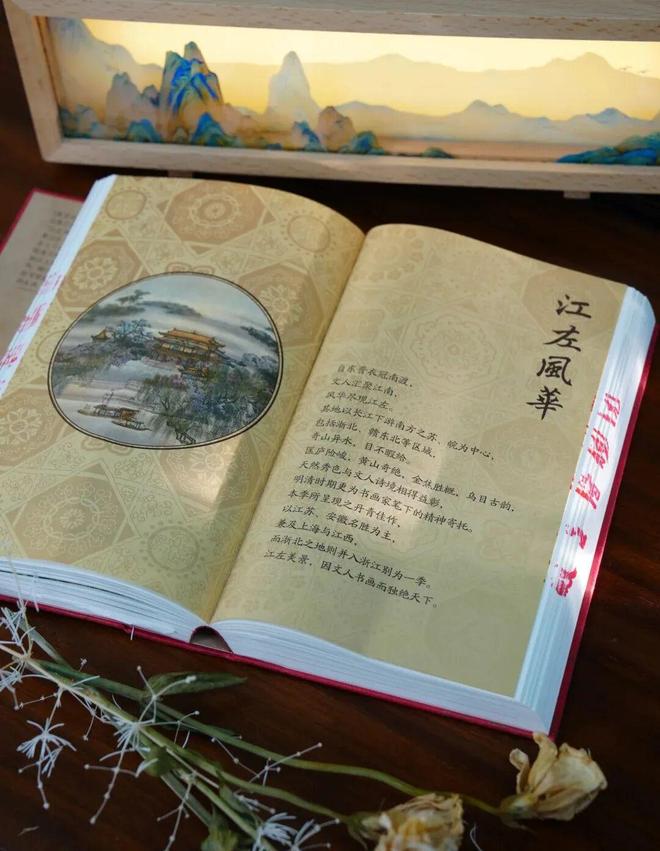 江左風華
自东晋衣冠南渡，
文人汇聚江南，
风华尽现江左。
基地以长江下游南方之苏、皖为中心，
包括浙北、赣东北等区域，
奇山异水，目不暇给。
匡庐险峻，黄山奇绝，金焦胜概，乌目古韵，
天然秀色与文人诗境相得益彰，
明清时期更为书画家笔下的精神寄托。
本季所呈现之丹青佳作，
以江苏、安徽名胜为主，
兼及上海与江西，
而浙北之地则并入浙江别为一季。
江左美景，因文人书画而独绝天下。